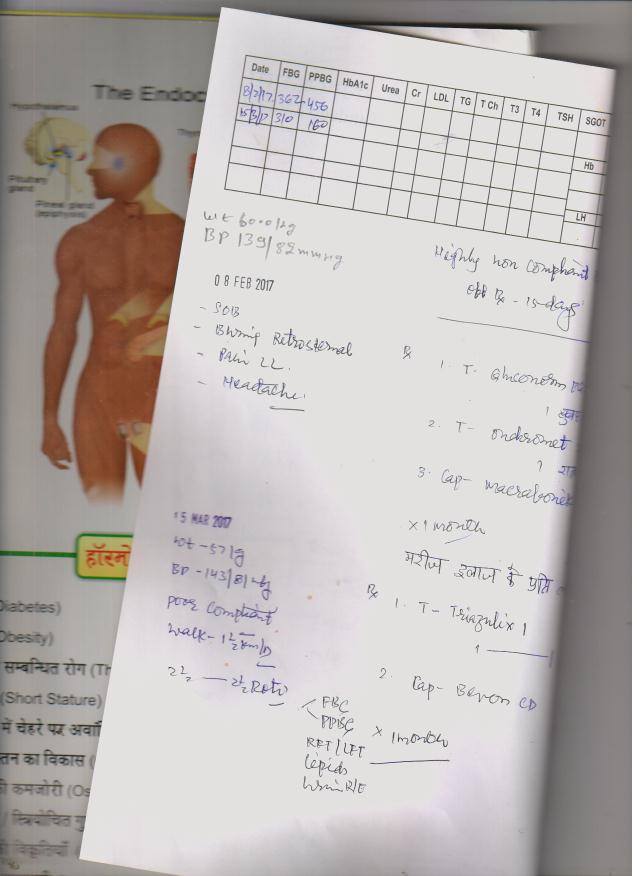 The Endoc
Hypothalamus
Pituitary
gland
Pineal gland
(epiphysis)
Thy
हॉरमो
Diabetes)
Obesity)
सम्बन्धित रोग (Th
(Short Stature)
में चेहरे पर अवां
तन का विकास (
ी कमजोरी (Os
/ स्त्रियोचित गु
ी विकृतियाँ
Date FBG PPBG HbA1c Urea Cr LDL TG T Ch T3 T4 TSH SGOT
8/2/17 362 456
15/3/17 310 160
Hb
LH
wt 60.0/kg
BP 139/82mmHg
08 FEB 2017
- SOB
- Burning Retrosternal
- Pain LL.
- Headache.
Highly non Compliant
off Rx - 15-days
Rx 1. T- Gluconorm
1
2. T- Ondromet
1
3. Cap- Macrabonik
x 1 month
मरीज इलाज के प्रति
15 MAR 2017
wt - 57/g
BP - 143/81
poor Compliant
Walk - 1 1/2 km/D
2 1/2 — 2 1/2 Roti
Rx 1. T- Triazulix 1
1
2. Cap- Bevon CD
x 1 month
FBG
PPBG
RFT/LFT
Lipids
Urine R/E